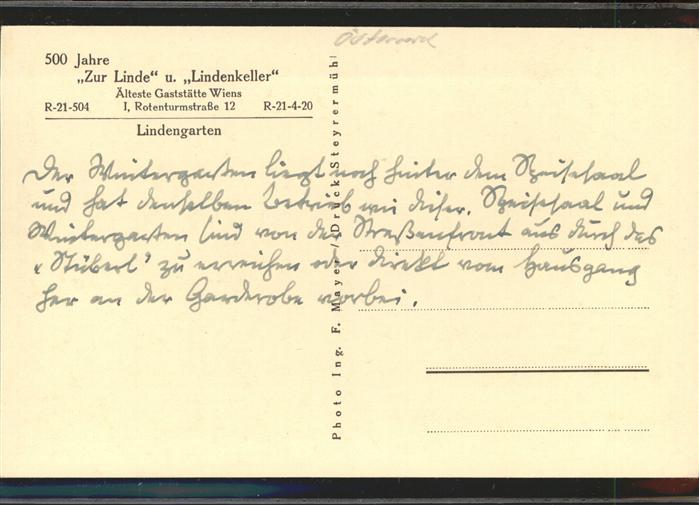 500 Jahre
„Zur Linde“ u. „Lindenkeller“
Älteste Gaststätte Wiens
R-21-504 I, Rotenturmstraße 12 R-21-4-20
Lindengarten
Der Wintergarten liegt noch hinter dem Speisesaal
und hat denselben Betrieb wie dieser. Speisesaal und
Wintergarten sind von der Straßenfront aus durch das
„Stüberl" zu erreichen oder direkt vom Hausgang
her an der Garderobe vorbei.
Photo Ing. F. Mayer / Druck Steyrermühl